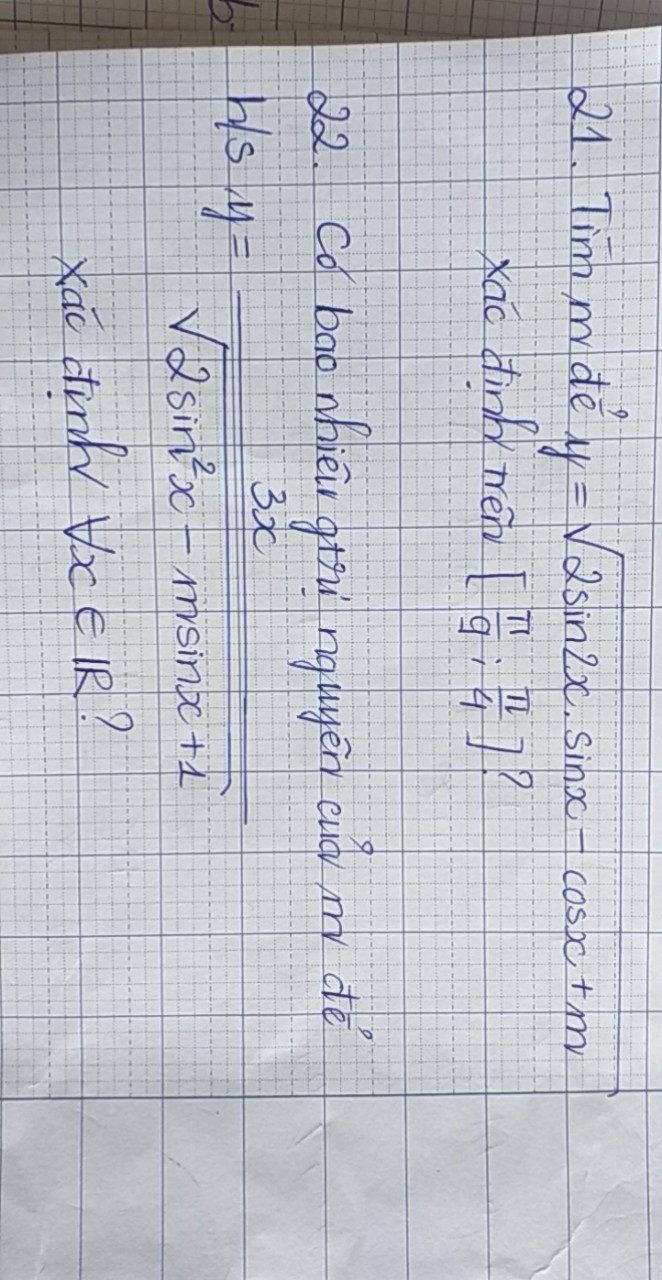 21. Tìm m để y = √2sin2x.sinx - cosx + m
xác định trên [π/9; π/4]?
22. Có bao nhiêu gtrị nguyên của m để
h/s y = 3x / √2sin²x - msinx + 1
xác định ∀x ∈ ℝ?